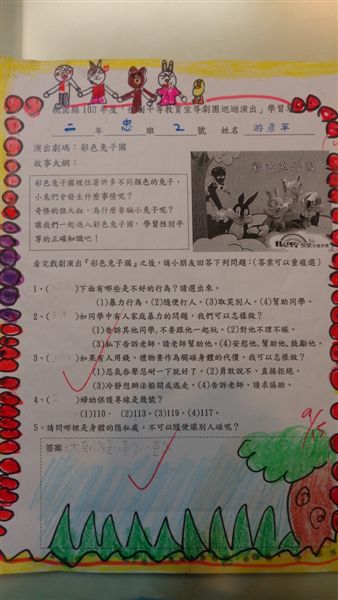 桃園縣 103 年度「性別平等教育宣導劇團巡迴演出」學習單
二 年 忠 班 2 號 姓名 游彥軍
演出劇碼：彩色兔子國
故事大綱：
彩色兔子國裡住著許多不同顏色的兔子，
小兔們會發生什麼事情呢？
奇怪的狼大叔，為什麼要騙小兔子呢？
讓我們一起進入彩色兔子國，學習性別平
等的正確知識吧！
彩色兔子國
看完戲劇演出『彩色兔子國』之後，請小朋友回答下列問題：(答案可以重複選)
1、( )下面有哪些是不好的行為？請選出來。
(1)暴力行為。(2)隨便打人。(3)取笑別人。(4)幫助同學。
2、( 3.4 )如同學中有人家庭暴力的問題，我們可以怎樣做？
(1)告訴其他同學，不要跟他一起玩。(2)對他不理不睬。
(3)私下告訴老師，請老師幫助他。(4)安慰他，幫助他，鼓勵他。
3、( )如果有人用錢、禮物要作為觸碰身體的代價，我可以怎樣做？
(1)忍氣吞聲忍耐一下就好了。(2)勇敢說不，直接拒絕。
(3)冷靜想辦法躲開或逃走。(4)告訴老師，請求協助。
4、( 2 )婦幼保護專線是幾號？
(1)110. (2)113. (3)119. (4)117.
5、請問哪裡是身體的隱私處，不可以隨便讓別人碰呢？
答案：